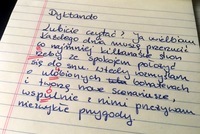 Dyktando
Lubicie czytać? Ja wielbiam
Każdego dnia muszę przerzucić
co najmniej kilkanaście stron
żeby ze spokojem położyć
się do snu. Wtedy rozmyślam
o ulubionych bohaterach
i tworzę nowe scenariusze,
wspólnie z nimi przeżywam
niezwykłe przygody.